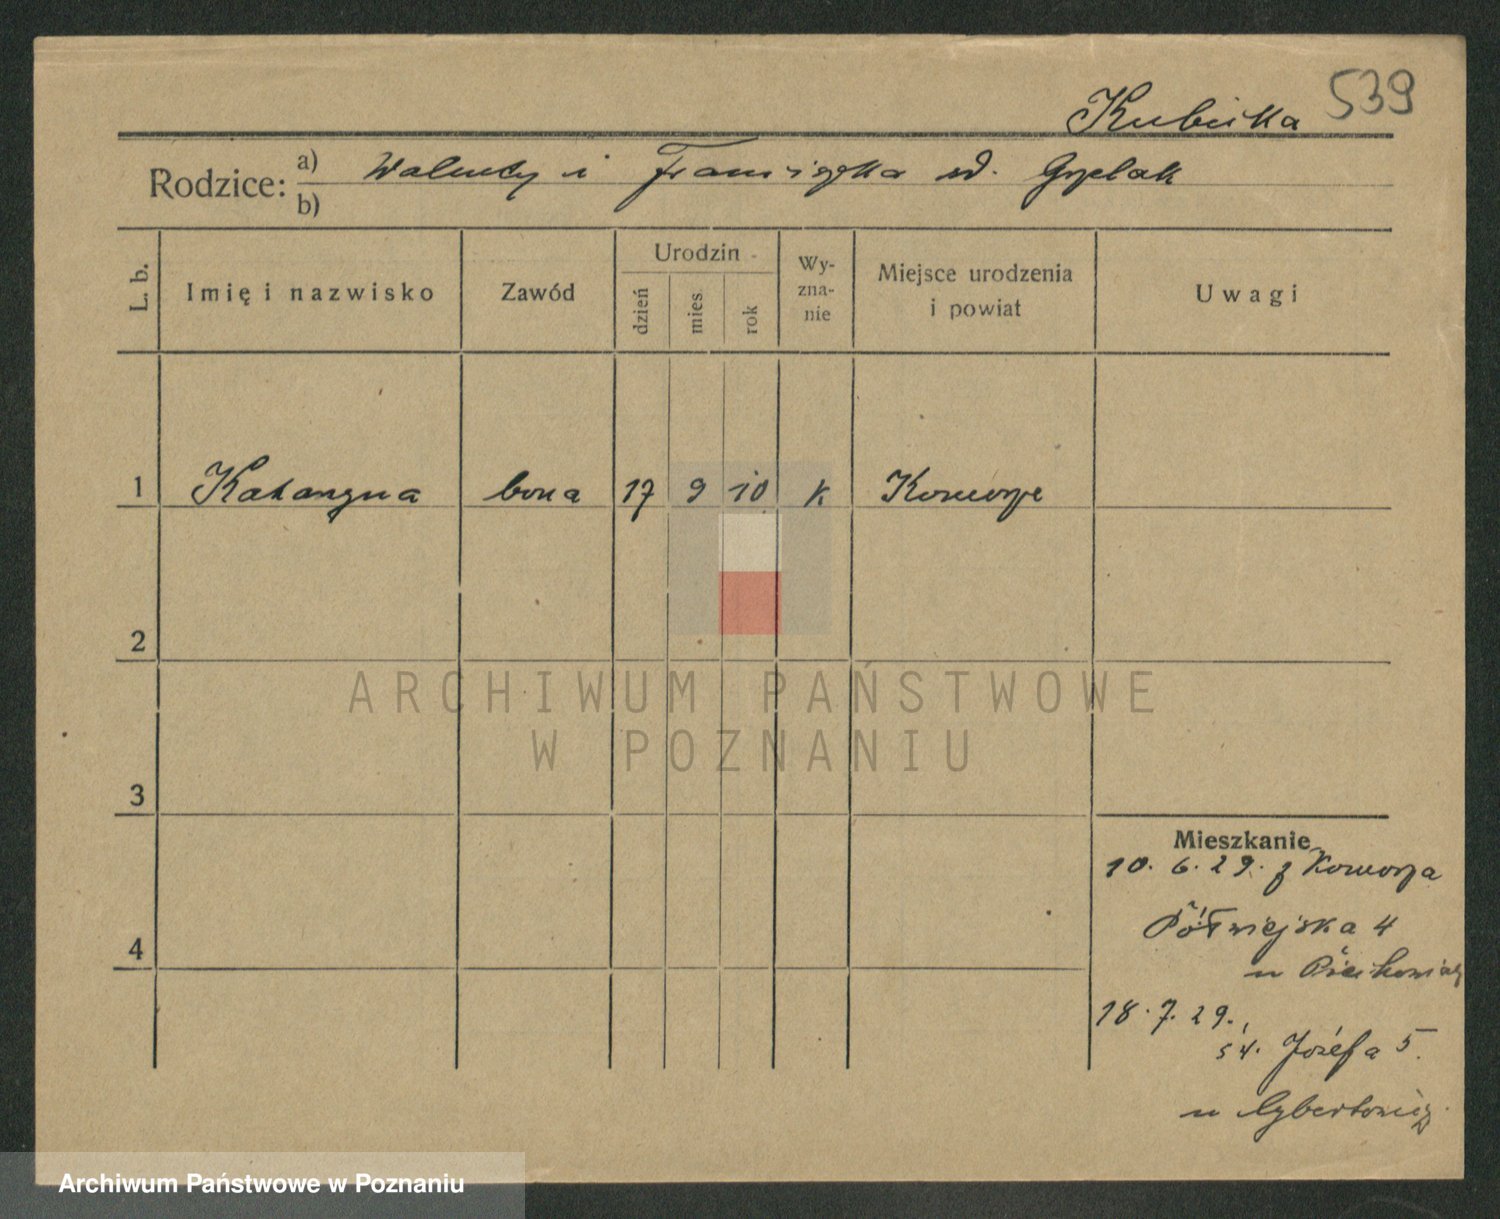 539
Kubicka
Rodzice: a) Walenty i Franciszka xd. Grzelak
b)
L. b.
Imię i nazwisko
Zawód
Urodzin
dzień
mies
rok
Wy-
zna-
nie
Miejsce urodzenia
i powiat
Uwagi
1 Katarzyna bona 17 9 10 k Komorze
2
ARCHIWUM PAŃSTWOWE
W POZNANIU
3
Mieszkanie
10. 6. 29. z Komorza
Półwiejska 4
u
4
18. 7. 29.,
św. Józefa 5.
u Cybertowicz.
Archiwum Państwowe w Poznaniu